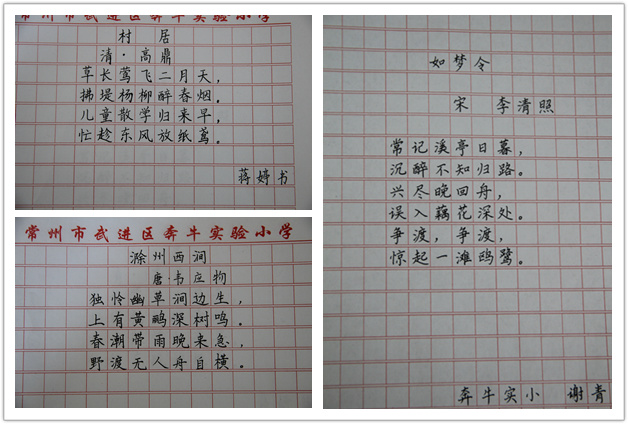 常州市武进区奔牛实验小学
村居
清·高鼎
草长莺飞二月天，
拂堤杨柳醉春烟。
儿童散学归来早，
忙趁东风放纸鸢。
蒋婷书
常州市武进区奔牛实验小学
滁州西涧
唐·韦庄物
独怜幽草涧边生，
上有黄鹂深树鸣。
春潮带雨晚来急，
野渡无人舟自横。
如梦令
宋 李清照
常记溪亭日暮，
沉醉不知归路。
兴尽晚回舟，
误入藕花深处。
争渡，争渡，
惊起一滩鸥鹭。
奔牛实小 谢青